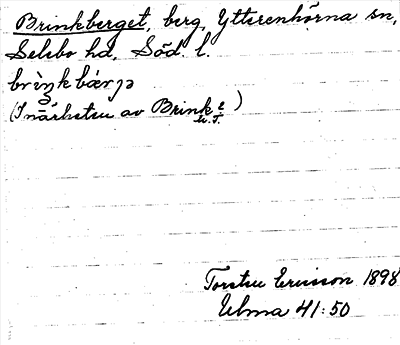 Brinkberget, berg, Ytterenhörna sn,
Selebo hd, Söd. l.
brìŋkbærjə
(I närheten av Brinke)
U.T.
Torsten Ericsson 1898
Ulma 41:50